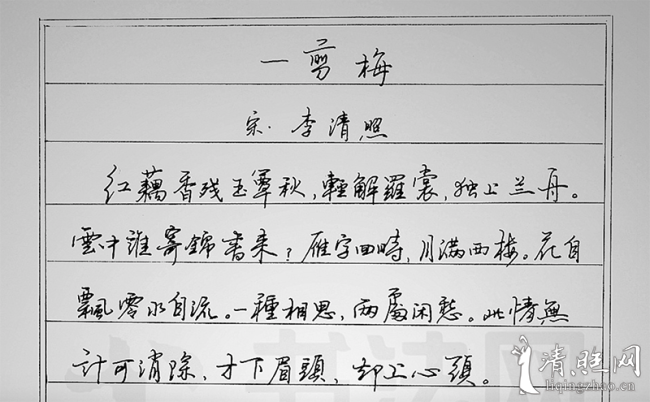 一剪梅
宋·李清照
红藕香残玉簟秋，輕解羅裳，独上兰舟。
雲中誰寄錦書来？雁字回時，月满西楼。花自
飄零水自流。一種相思，两處闲愁。此情無
計可消除，才下眉頭，却上心頭。
清照网
liqingzhao.cn